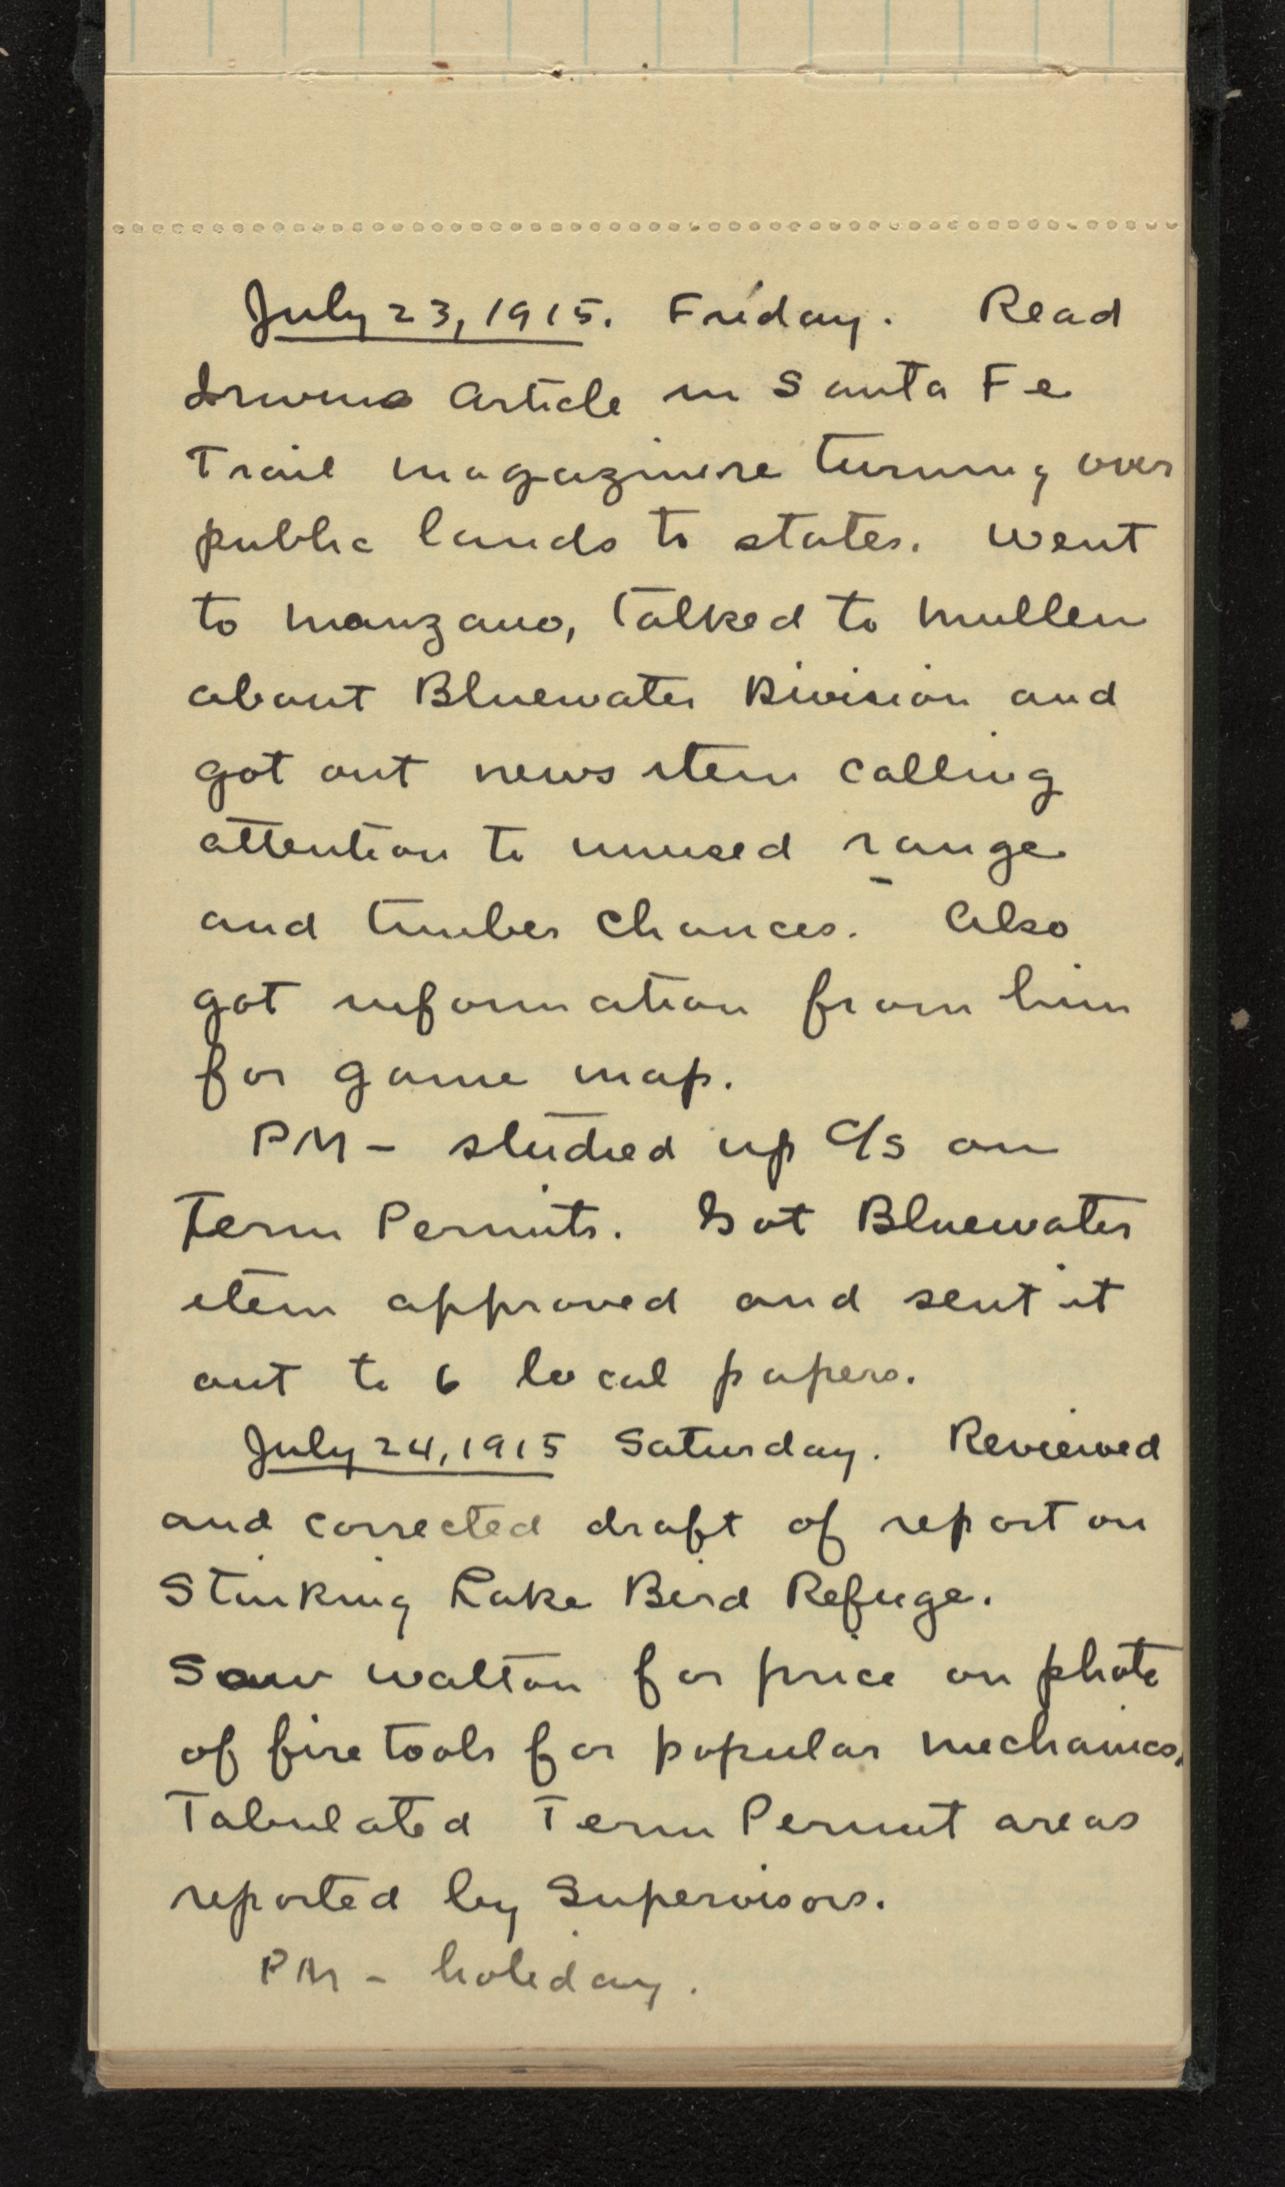 July 23, 1915. Friday. Read
Irwins Article in Santa Fe
Trail magazine re turning over
public lands to states. Went
to Manzano, Talked to Mullen
about Bluewater Division and
got out news item calling
attention to unused range
and timber chances. Also
got information from him
for game map.
PM - studied up C/s on
Term Permits. Got Bluewater
item approved and sent it
out to 6 local papers.
July 24, 1915 Saturday. Reviewed
and corrected draft of report on
Stinking Lake Bird Refuge.
Saw Walton for price on photo
of fire tools for popular mechanics.
Tabulated Term Permit areas
reported by Supervisors.
PM - holiday.